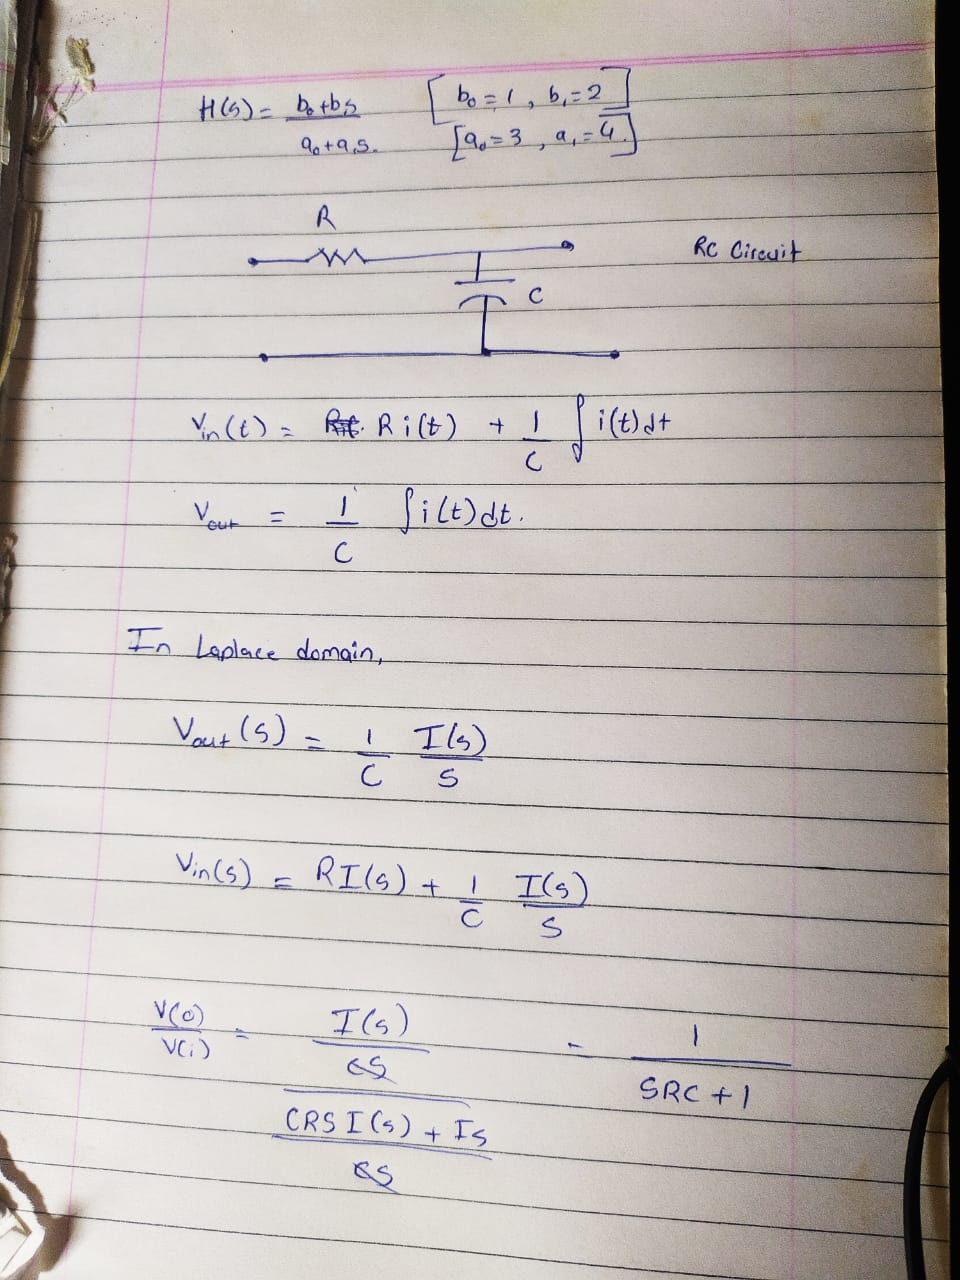 H(s) = b₀+bs / a₀+a₁s. [b₀=1, b₁=2]
[a₀=3, a₁=4.]
R
RC Circuit
C
Vin(t) = R i(t) + 1/C ∫i(t)dt
Vout = 1/C ∫i(t)dt.
In Laplace domain,
Vout(s) = 1/C I(s)/S
Vin(s) = RI(s) + 1/C I(s)/S
V(o)/V(i) = I(s)/CS / CRS I(s) + Is/CS = 1/SRC + 1